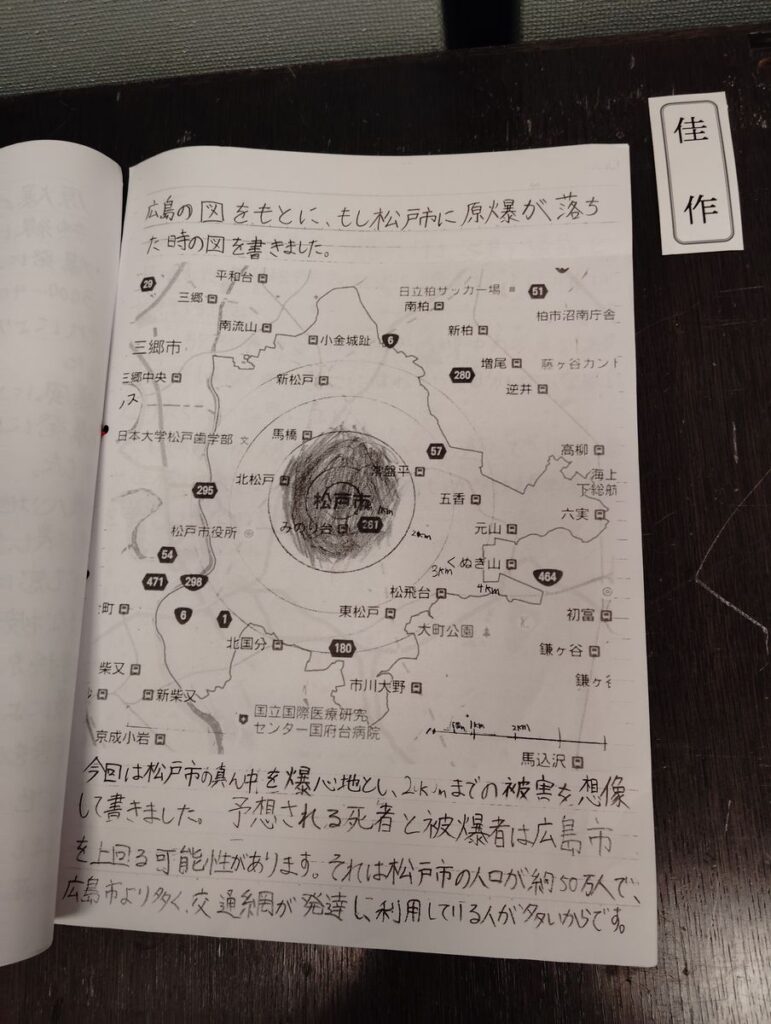 佳作
広島の図をもとに、もし松戸市に原爆が落ち
た時の図を書きました。
29
平和台
三郷
日立柏サッカー場
51
南柏
柏市沼南庁舎
南流山
小金城趾
6
新柏
三郷市
増尾
藤ヶ谷カント
三郷中央
新松戸
280
逆井
日本大学松戸歯学部
馬橋
57
高柳
常盤平
海上
下総航
北松戸
295
松戸市
1km
五香
六実
松戸市役所
みのり台
281
2km
元山
54
3km
くぬぎ山
471
298
松飛台
4km
464
町
6
1
東松戸
初富
大町公園
北国分
180
鎌ヶ谷
柴又
市川大野
鎌ヶ谷
新柴又
国立国際医療研究
センター国府台病院
京成小岩
1km
2km
馬込沢
今回は松戸市の真ん中を爆心地とし、2kmまでの被害を想像
して書きました。予想される死者と被爆者は広島市
を上回る可能性があります。それは松戸市の人口が約50万人で、
広島市より多く、交通網が発達し、利用している人が多いからです。